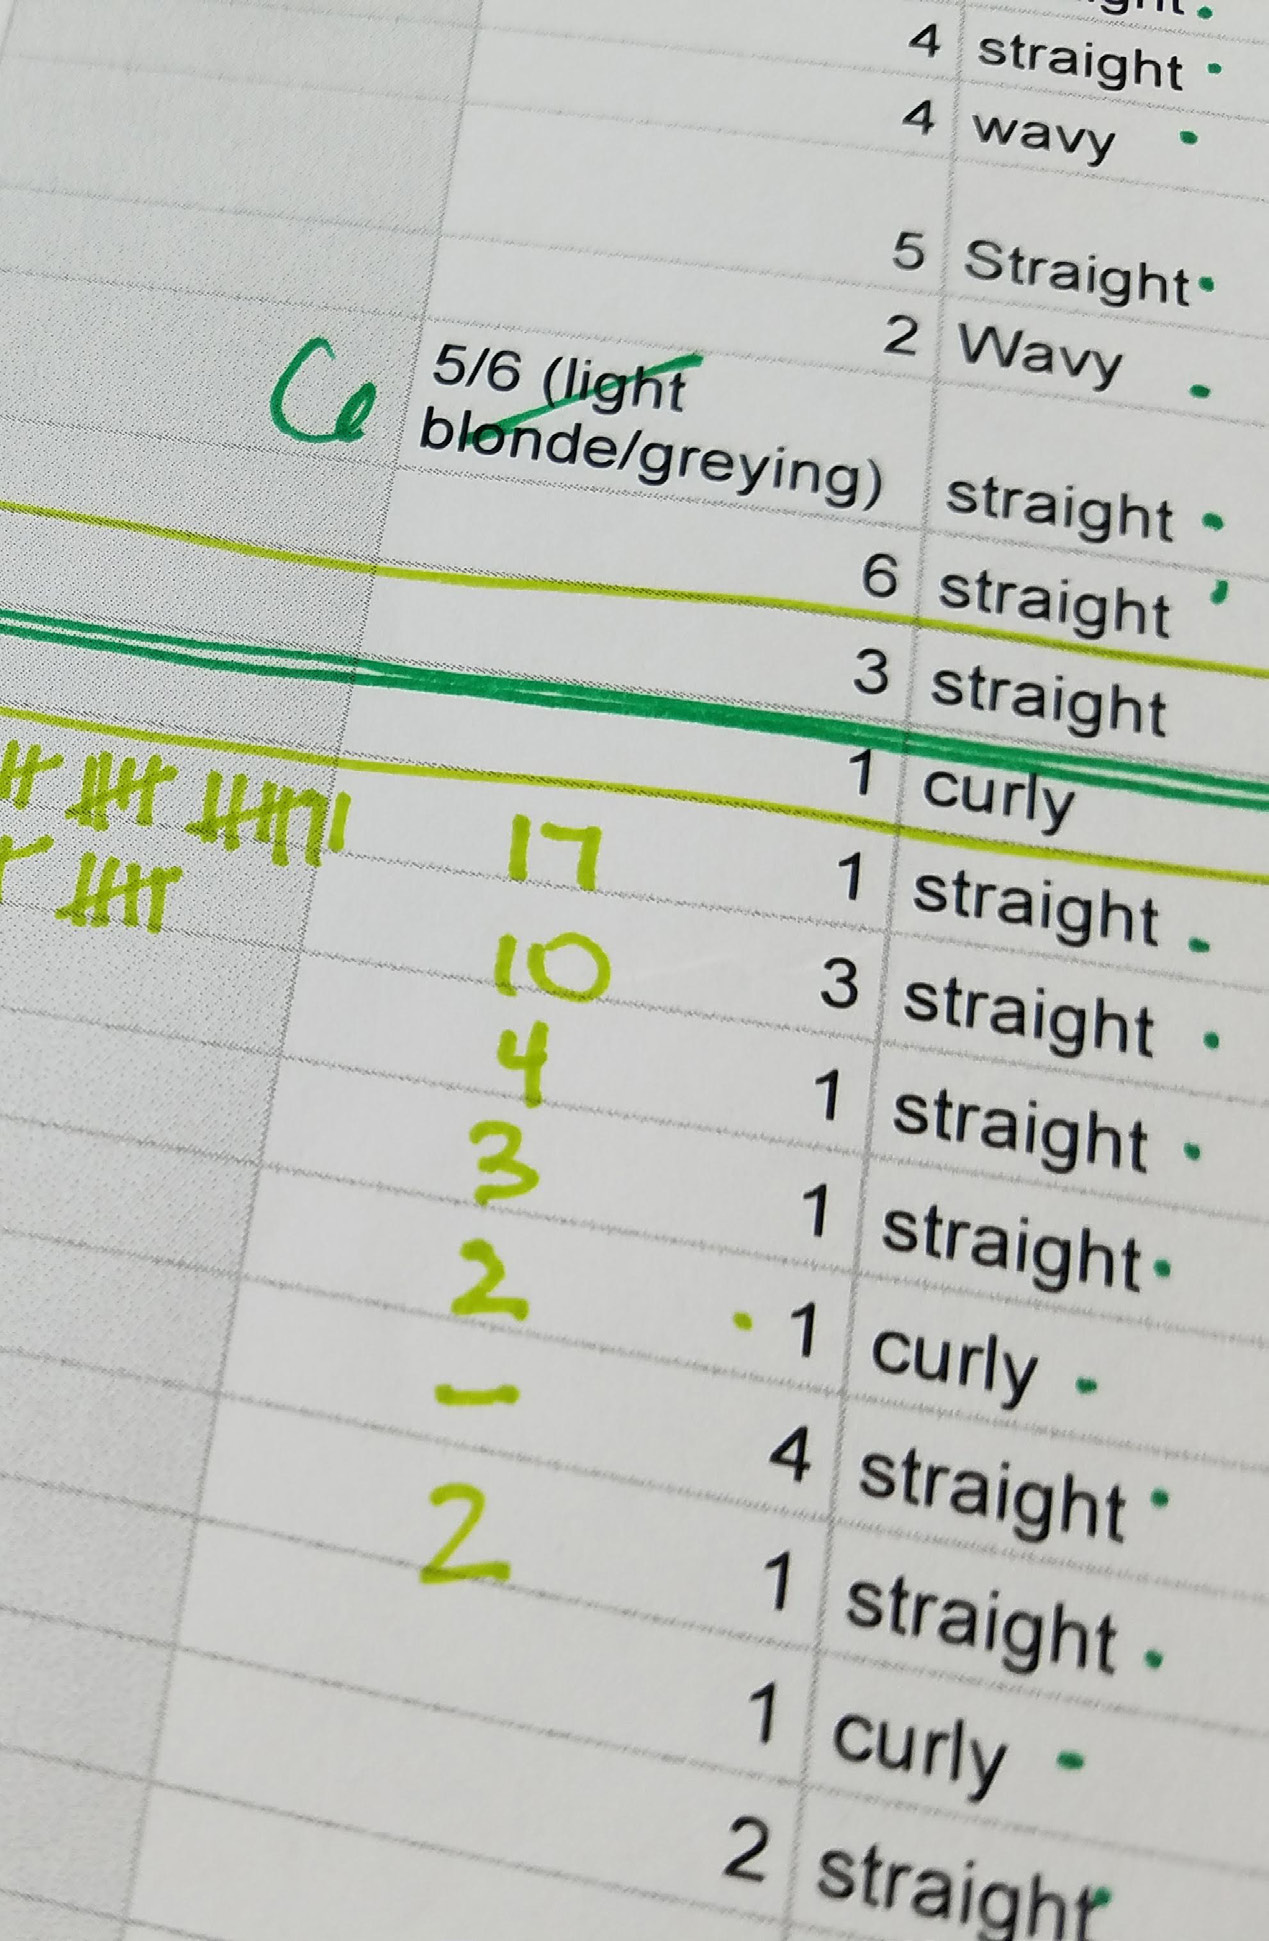 4 straight
4 wavy
5 Straight
2 Wavy
6 5/6 (light
blonde/greying) straight
6 straight
3 straight
1 curly
17 1 straight
10 3 straight
4 1 straight
3 1 straight
2 1 curly
– 4 straight
2 1 straight
1 curly
2 straight